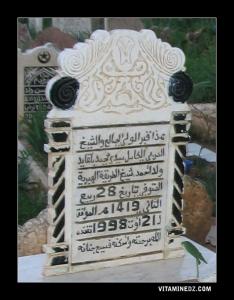 هذا قبر الولي الصالح والشيخ
المربي الكامل سيدي محمد بلقايد
ولد أحمد شيخ الطريقة الهبرية
المتوفى بتاريخ 28 ربيع
الثاني 1419 هـ الموافق
لـ 21 أوت 1998 تغمده
الله برحمته وأسكنه فسيح جناته
WWW.VITAMINEDZ.COM